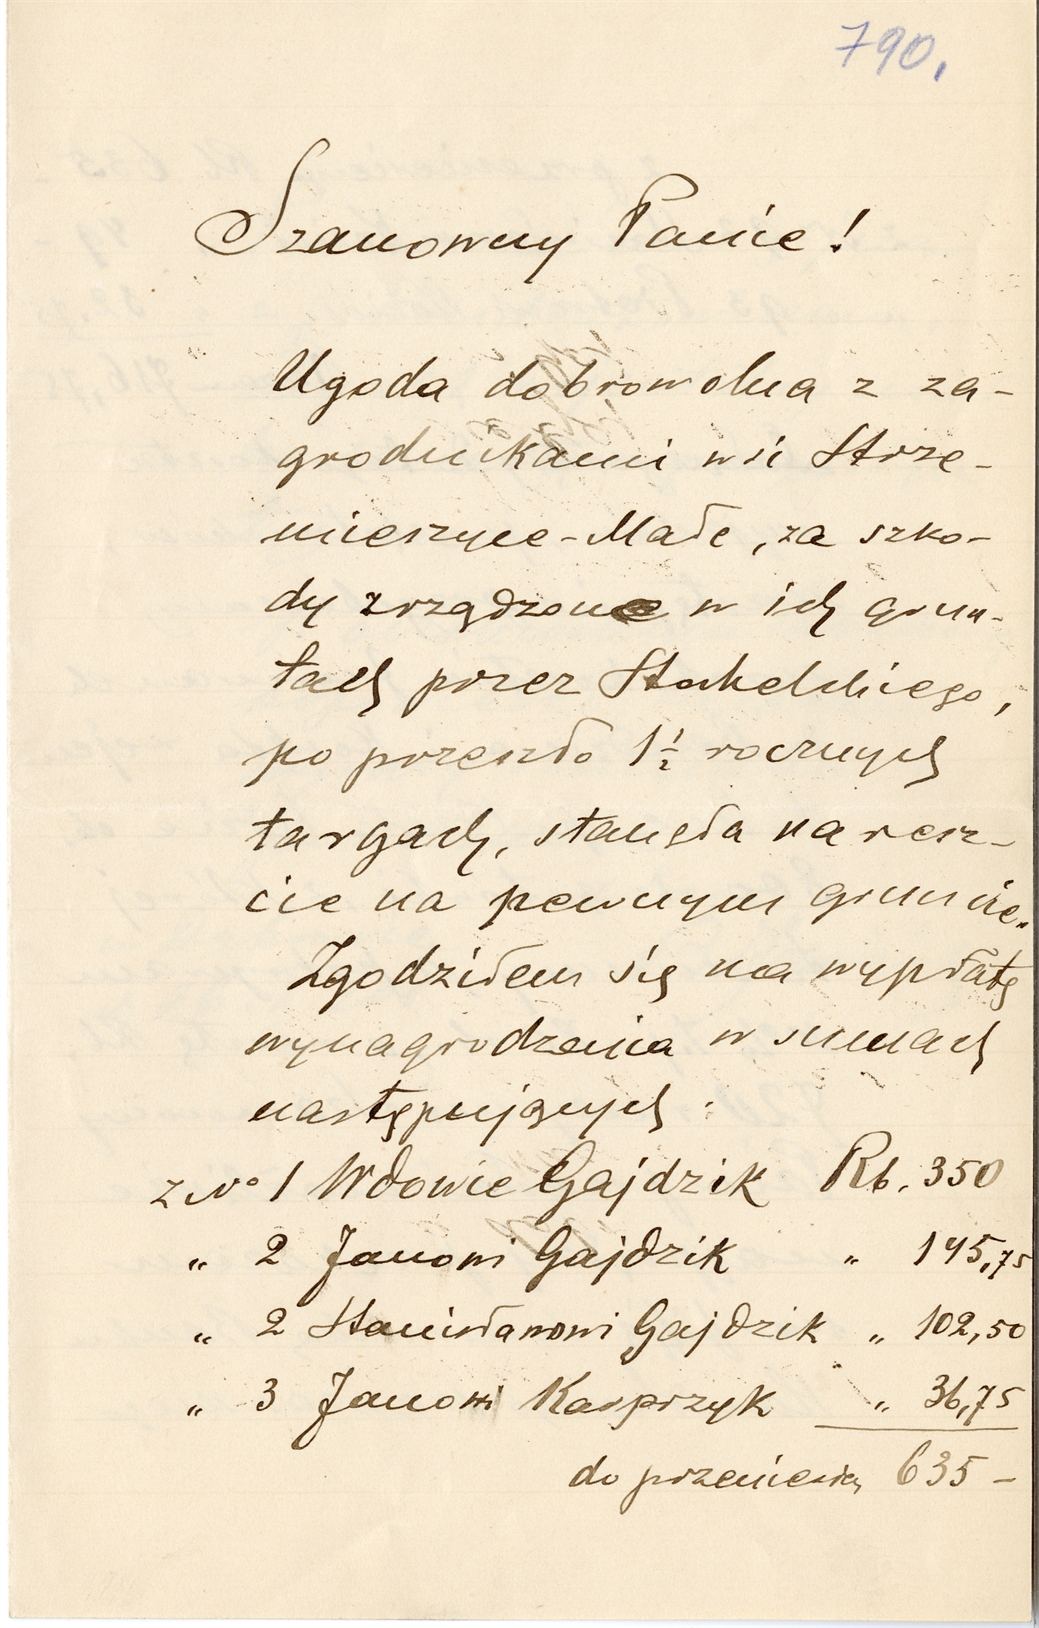 790,
Szanowny Panie!
Ugoda dobrowolna z za-
grodnikami wsi Strze-
mieszyce-Małe, za szko-
dy zrządzone w ich grun-
tach przez Stachelskiego,
po przeszło 1½ rocznych
targach, stanęła naresz-
cie na pewnym gruncie.
Zgodziłem się na wypłatę
wynagrodzenia w sumach
następujących:
z No 1 Wdowie Gajdzik Rb. 350
„ 2 Janowi Gajdzik „ 145,75
„ 2 Stanisławowi Gajdzik „ 102,50
„ 3 Janowi Kasprzyk „ 36,75
do przeniesienia 635 –